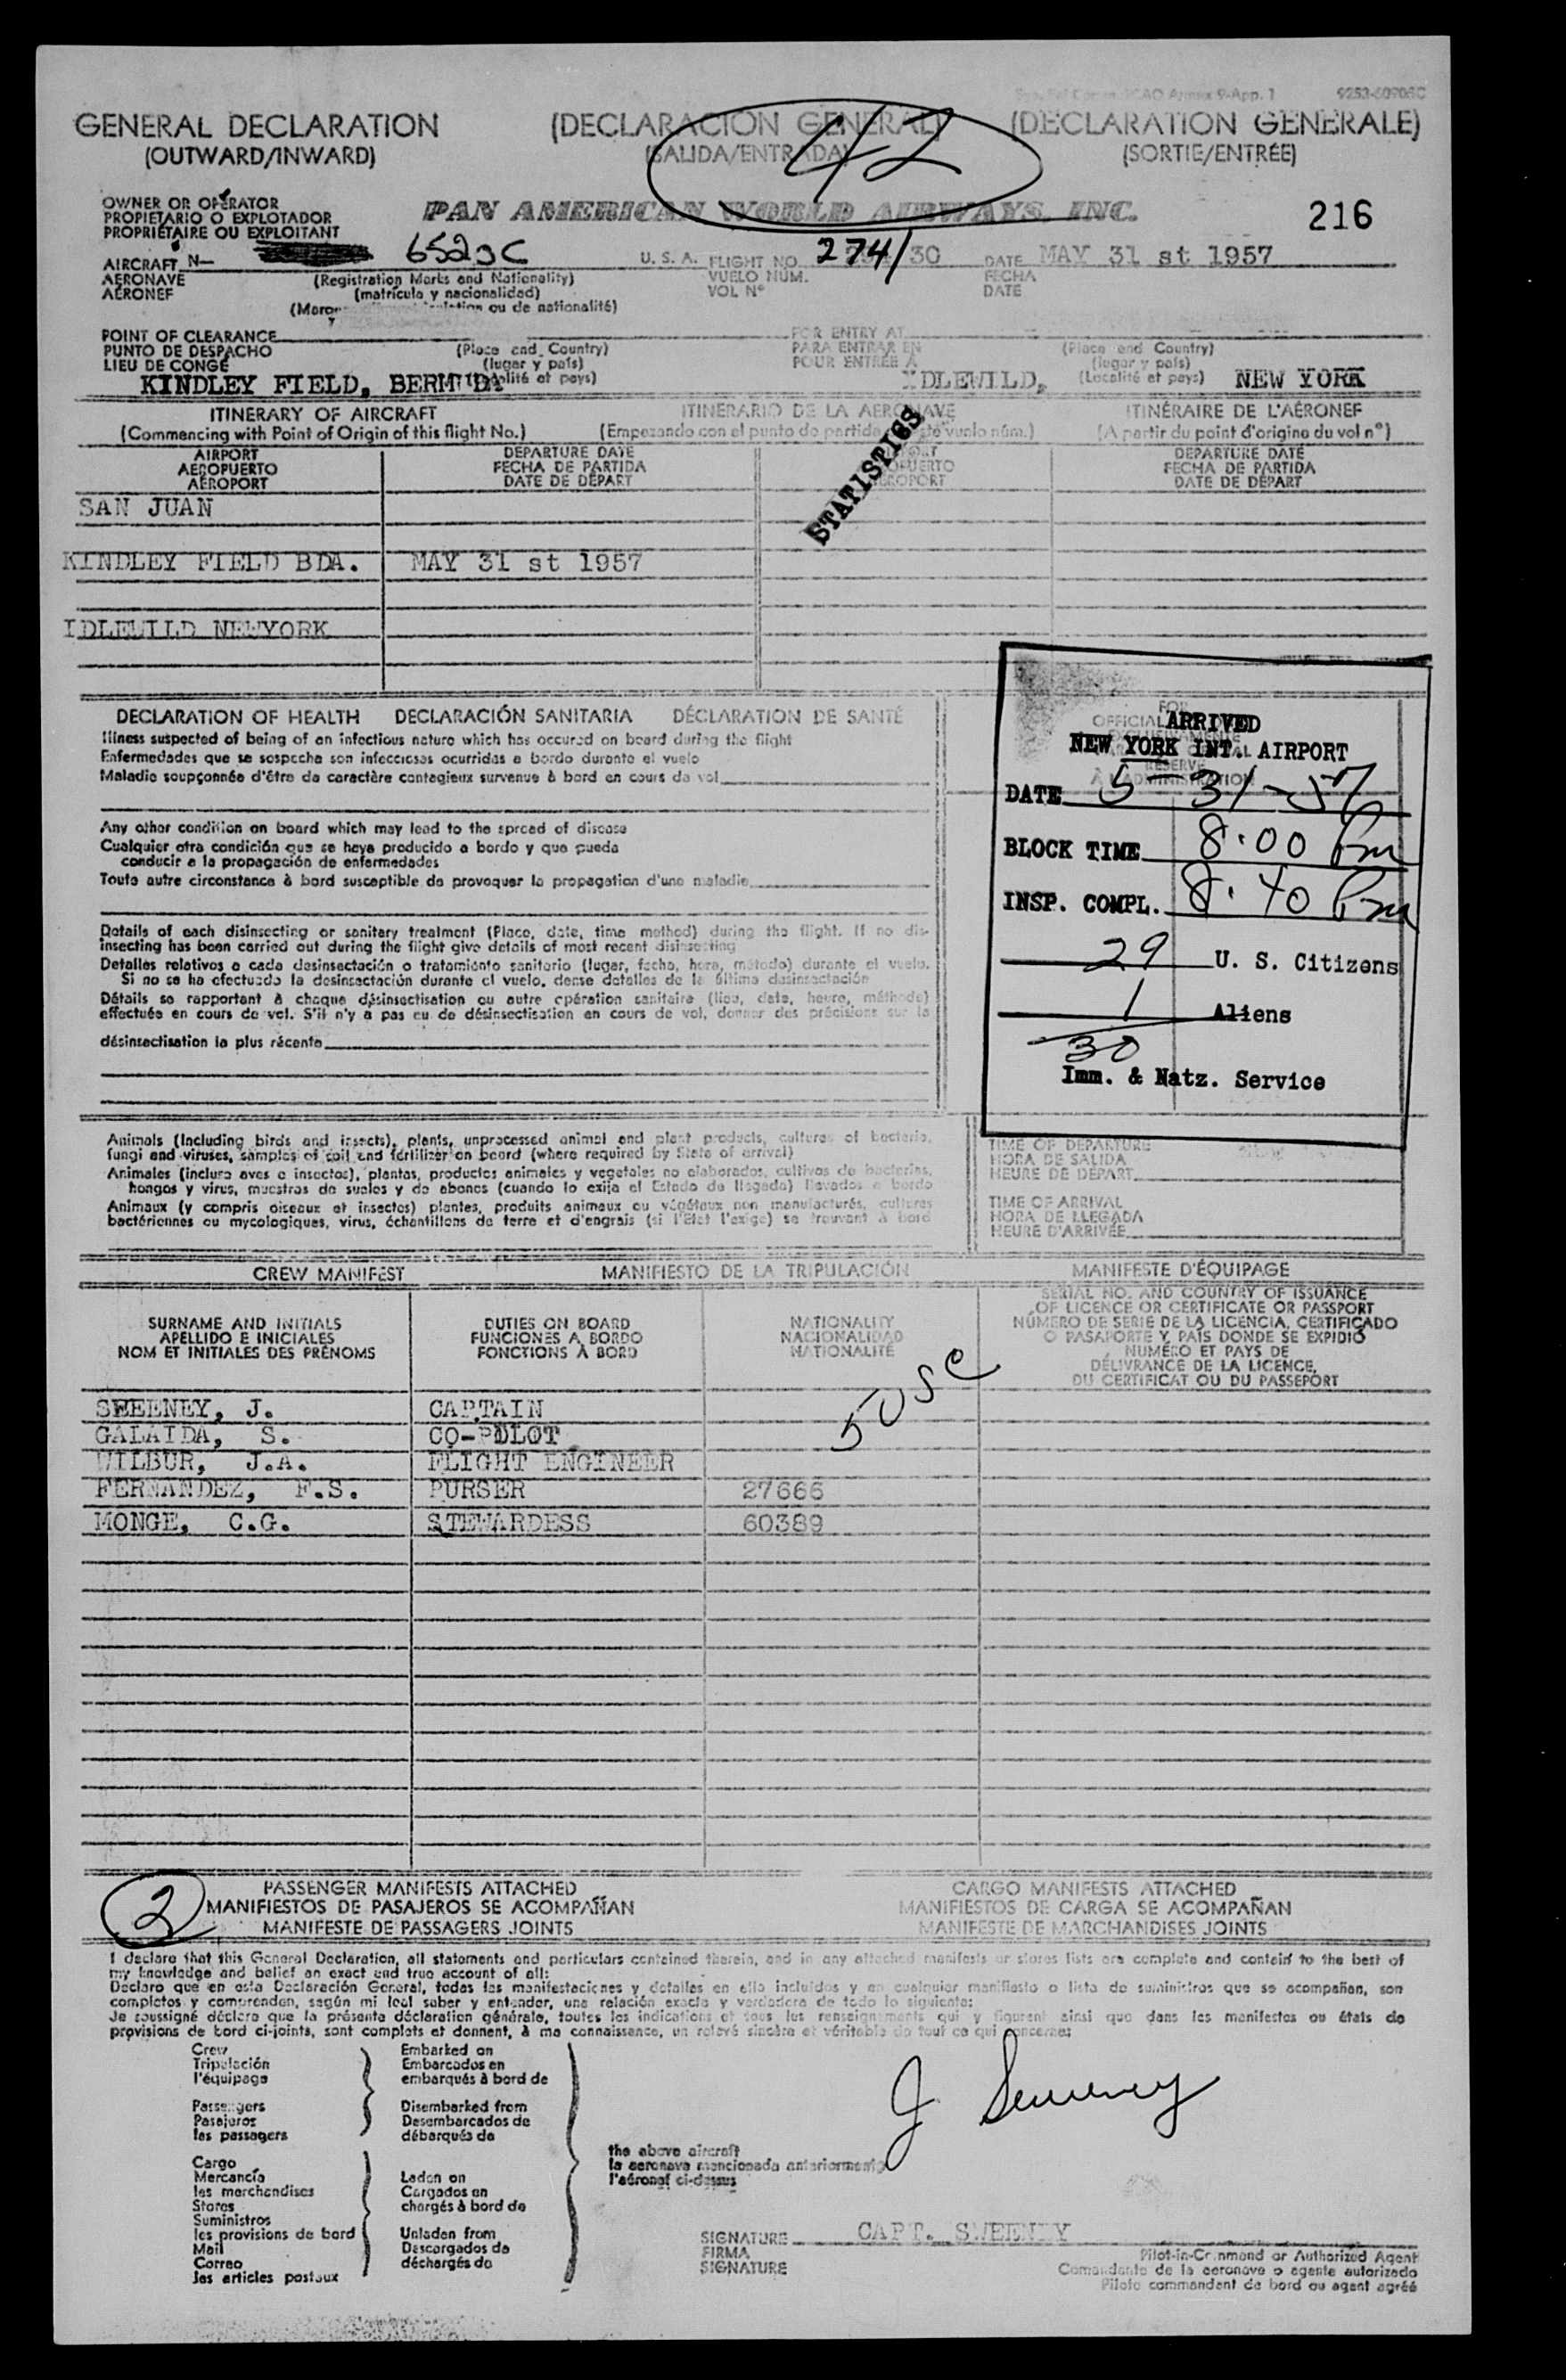 9253-60906C
GENERAL DECLARATION (DECLARACIÓN GENERAL) (DECLARATION GÉNÉRALE)
(OUTWARD/INWARD) (SALIDA/ENTRADA) (SORTIE/ENTRÉE)
42
OWNER OR OPERATOR
PROPIETARIO O EXPLOTADOR
PROPRIÉTAIRE OU EXPLOITANT
PAN AMERICAN WORLD AIRWAYS, INC.
216
AIRCRAFT N— U. S. A. FLIGHT NO 274/30 DATE MAY 31 st 1957
AERONAVE (Registration Marks and Nationality) VUELO NÚM. FECHA
AÉRONEF (matrícula y nacionalidad) VOL Nº DATE
ou de nationalité)
POINT OF CLEARANCE FOR ENTRY AT
PUNTO DE DESPACHO (Place and Country) PARA ENTRAR EN (Place and Country)
LIEU DE CONGÉ (lugar y país) POUR ENTRÉE À (lugar y país)
KINDLEY FIELD, BERMUDA et pays) IDLEWILD, (Localité et pays) NEW YORK
ITINERARY OF AIRCRAFT ITINERARIO DE LA AERONAVE ITINÉRAIRE DE L'AÉRONEF
(Commencing with Point of Origin of this flight No.) (Empezando con el punto de partida de este vuelo núm.) (A partir du point d'origine du vol nº)
AIRPORT DEPARTURE DATE DEPARTURE DATE
AEROPUERTO FECHA DE PARTIDA FECHA DE PARTIDA
AÉROPORT DATE DE DÉPART DATE DE DÉPART
STATISTICS
SAN JUAN
KINDLEY FIELD BDA. MAY 31 st 1957
IDLEWILD NEWYORK
DECLARATION OF HEALTH DECLARACIÓN SANITARIA DÉCLARATION DE SANTÉ
Illness suspected of being of an infectious nature which has occured on board during the flight
Enfermedades que se sospecha son infecciosas ocurridas a bordo durante el vuelo
Maladie soupçonnée d'être de caractère contagieux survenue à bord en cours de vol
Any other condition on board which may lead to the spread of disease
Cualquier otra condición que se haya producido a bordo y que pueda
conducir a la propagación de enfermedades
Toute autre circonstance à bord susceptible de provoquer la propagation d'une maladie
Details of each disinsecting or sanitary treatment (Place, date, time method) during the flight. If no dis-
insecting has been carried out during the flight give details of most recent disinsecting
Detalles relativos a cada desinsectación o tratamiento sanitario (lugar, fecha, hora, método) durante el vuelo.
Si no se ha efectuado la desinsectación durante el vuelo, dense detalles de la última desinsectación
Détails se rapportant à chaque désinsectisation ou autre opération sanitaire (lieu, date, heure, méthode)
effectuée en cours de vol. S'il n'y a pas eu de désinsectisation en cours de vol, donner des précisions sur la
désinsectisation la plus récente
ARRIVED
NEW YORK INT. AIRPORT
DATE 5-31-57
BLOCK TIME 8:00 Pm
INSP. COMPL. 8:40 Pm
29 U. S. Citizens
1 Aliens
30
Imm. & Natz. Service
Animals (Including birds and insects), plants, unprocessed animal and plant products, cultures of bacteria,
fungi and viruses, samples of soil and fertilizer on board (where required by State of arrival)
Animales (incluro aves e insectos), plantas, productos animales y vegetales no elaborados, cultivos de bacterias,
hongos y virus, muestras de suelos y de abonos (cuando lo exija el Estado de llegada) llevados a bordo
Animaux (y compris oiseaux et insectes) plantes, produits animaux ou végétaux non manufacturés, cultures
bactériennes ou mycologiques, virus, échantillons de terre et d'engrais (si l'État l'exige) se trouvant à bord
TIME OF DEPARTURE
HORA DE SALIDA
HEURE DE DÉPART
TIME OF ARRIVAL
HORA DE LLEGADA
HEURE D'ARRIVÉE
CREW MANIFEST MANIFIESTO DE LA TRIPULACIÓN MANIFESTE D'ÉQUIPAGE
SURNAME AND INITIALS
APELLIDO E INICIALES
NOM ET INITIALES DES PRÉNOMS
DUTIES ON BOARD
FUNCIONES A BORDO
FONCTIONS À BORD
NATIONALITY
NACIONALIDAD
NATIONALITÉ
SERIAL NO. AND COUNTRY OF ISSUANCE
OF LICENCE OR CERTIFICATE OR PASSPORT
NÚMERO DE SERIE DE LA LICENCIA, CERTIFICADO
O PASAPORTE Y PAÍS DONDE SE EXPIDIÓ
NUMÉRO ET PAYS DE
DÉLIVRANCE DE LA LICENCE,
DU CERTIFICAT OU DU PASSEPORT
5 USC
SEEENEY, J. CAPTAIN
GALAIDA, S. CO-PILOT
WILBUR, J.A. FLIGHT ENGINEER
FERNANDEZ, F.S. PURSER 27666
MONGE, C.G. STEWARDESS 60389
2
PASSENGER MANIFESTS ATTACHED CARGO MANIFESTS ATTACHED
MANIFIESTOS DE PASAJEROS SE ACOMPAÑAN MANIFIESTOS DE CARGA SE ACOMPAÑAN
MANIFESTE DE PASSAGERS JOINTS MANIFESTE DE MARCHANDISES JOINTS
I declare that this General Declaration, all statements and particulars contained therein, and in any attached manifests or stores lists are complete and contain to the best of
my knowledge and belief an exact and true account of all:
Declaro que en esta Declaración General, todas las manifestaciones y detalles en ella incluidos y en cualquier manifiesto o lista de suministros que se acompañan, son
completos y comprenden, según mi leal saber y entender, una relación exacta y verdadera de todo lo siguiente:
Je soussigné déclare que la présente déclaration générale, toutes les indications et tous les renseignements qui y figurent ainsi que dans les manifestes ou états de
provisions de bord ci-joints, sont complets et donnent, à ma connaissance, un relevé sincère et véritable de tout ce qui concerne:
Crew Embarked on
Tripulación Embarcados en
l'équipage embarqués à bord de
Passengers Disembarked from
Pasajeros Desembarcados de
les passagers débarqués de
the above aircraft
la aeronave mencionada anteriormente
l'aéronef ci-dessus
Cargo
Mercancía Laden on
les marchandises Cargados en
Stores chargés à bord de
Suministros
les provisions de bord Unladen from
Mail Descargados de
Correo déchargés de
les articles postaux
J Sweeney
SIGNATURE CAPT. SWEENEY
FIRMA
SIGNATURE
Pilot-in-Command or Authorized Agent
Comandante de la aeronave o agente autorizado
Pilote commandant de bord ou agent agréé